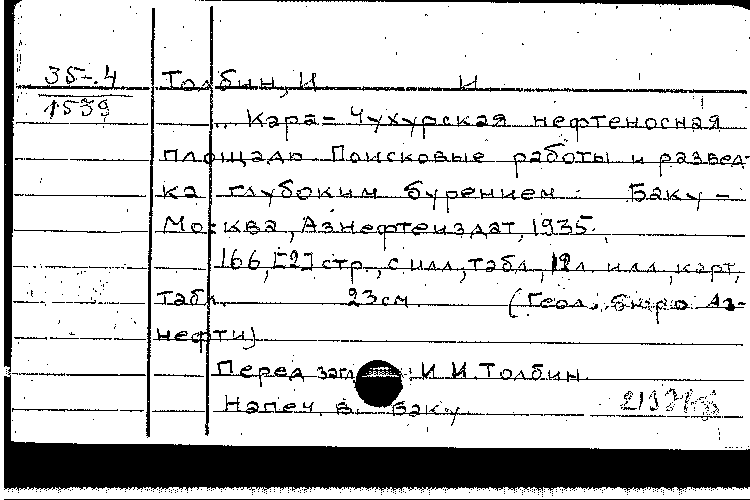 35-.4
1539
Толбин, И И
Кара-Чухурская нефтеносная
площадь. Поисковые работы и развед-
ка глубоким бурением. Баку -
Москва, Азнефтеиздат, 1935.
166, [2] стр., с илл, табл, 12 л. илл, карт,
табл. 23 см. (Геол. бюро Аз-
нефти)
Перед загл И И. Толбин
Напеч. в. Баку